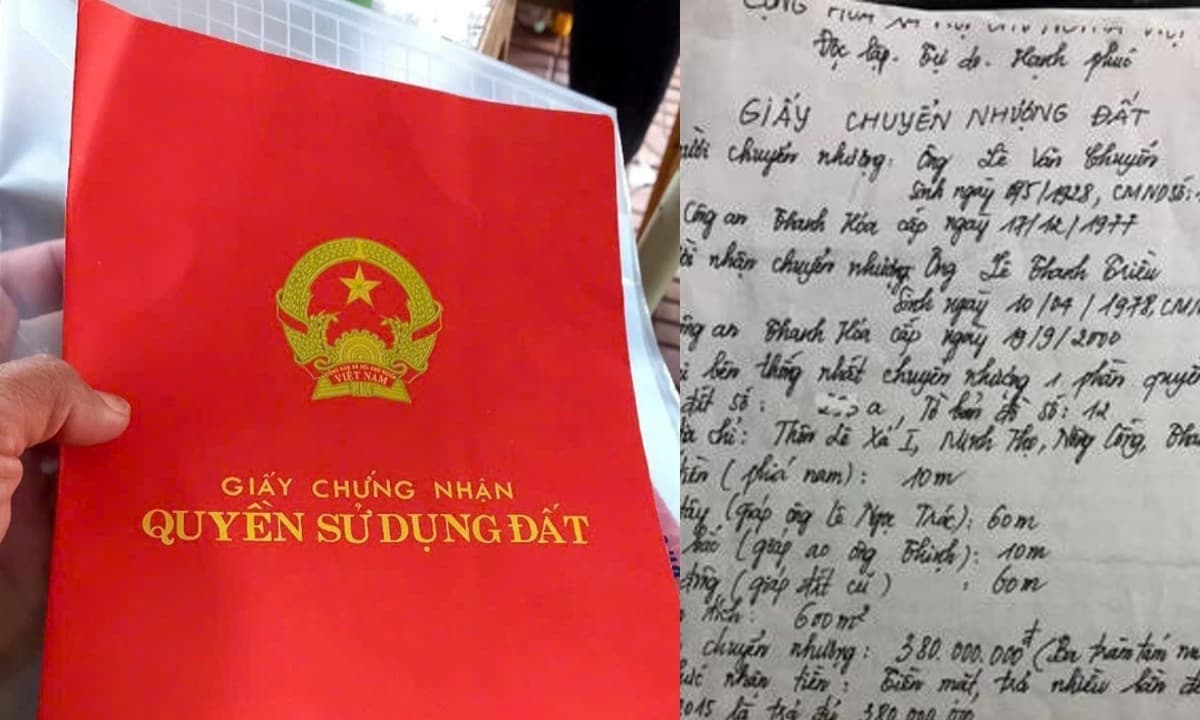 VIỆT NAM
GIẤY CHỨNG NHẬN
QUYỀN SỬ DỤNG ĐẤT
CỘNG
Độc lập. Tự do. Hạnh phúc
GIẤY CHUYỂN NHƯỢNG ĐẤT
chuyển nhượng: Ông Lê Văn Chuyến
Sinh ngày /1928, CMND số:
Công an Thanh Hóa cấp ngày 17/12/1977
nhận chuyển nhượng Ông Lê Thanh Triều
Sinh ngày 10/04/1978, CMN
ông an Thanh Hóa cấp ngày 19/9/2000
bên thống nhất chuyển nhượng 1 phần quyền
đất số: a, Tờ bản đồ số: 12
ịa chỉ: Thôn Lê Xá I, Minh Thọ, Nông Cống, Tha
(phía nam): 10m
(giáp ông Lê Ngọc Trác): 60m
bắc (giáp ao ông Thịnh): 10m
đông (giáp đất cũ) : 60m
tích: 600m²
chuyển nhượng: 380.000.000đ (Ba trăm tám m
nhận tiền: Tiền mặt, trả nhiều lần đ
2015 là trả đủ 380.000.000